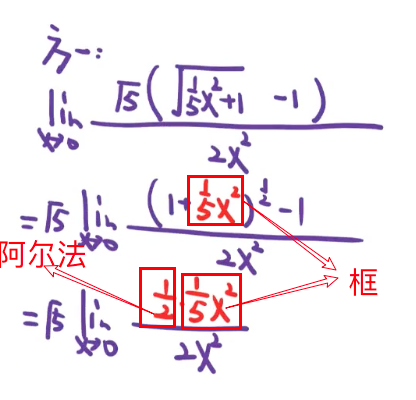 方一:
lim x→0 √5(√(1/5x²+1) -1) / 2x²
=√5 lim x→0 ((1+1/5x²)^(1/2) -1) / 2x²
阿尔法
框
=√5 lim x→0 (1/2·1/5x²) / 2x²